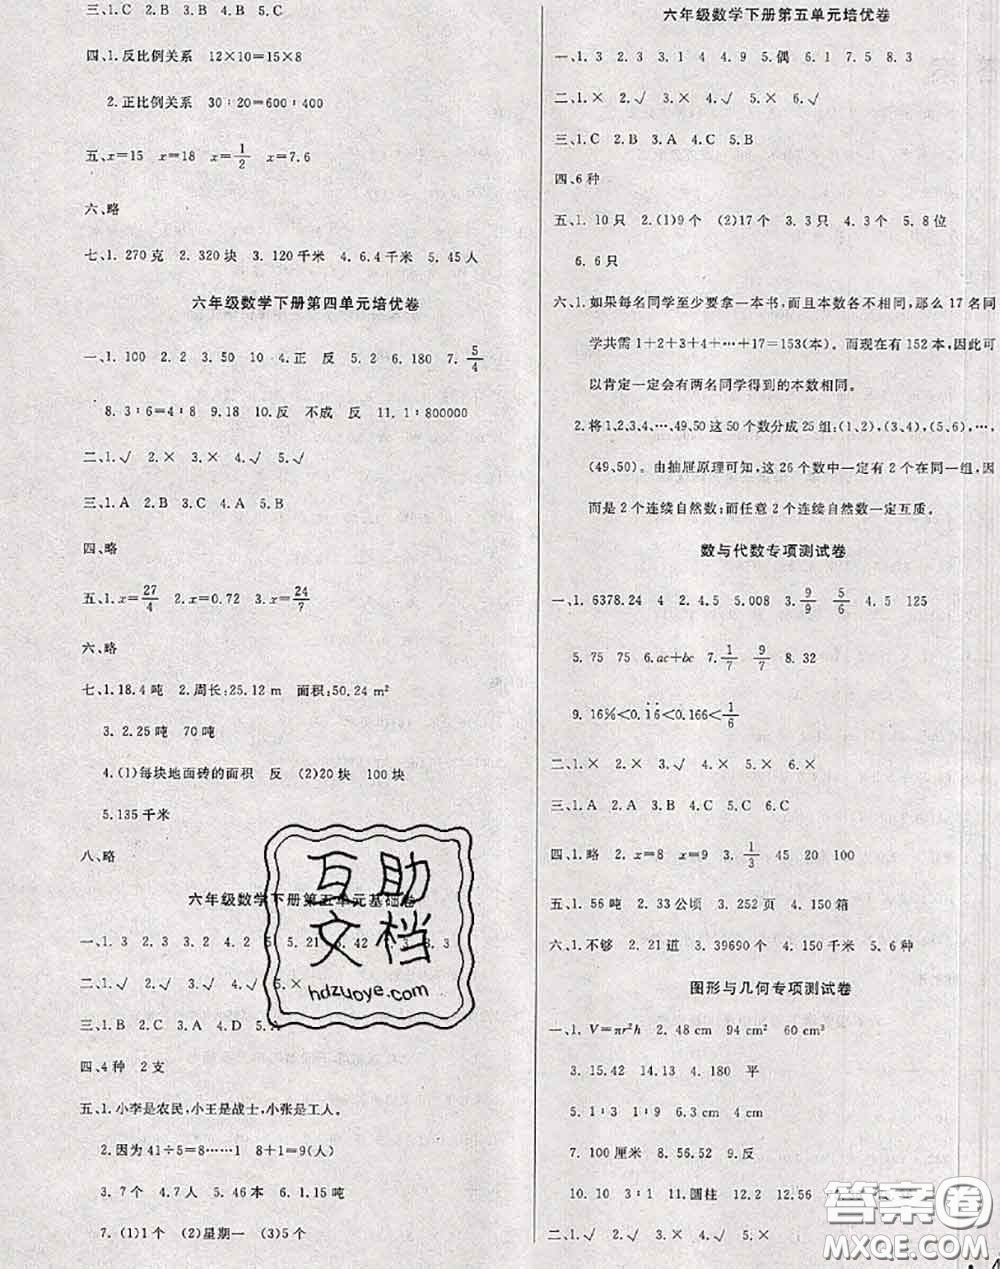 三、1.C 2.B 3.B 4.B 5.C
四、1.反比例关系 12×10=15×8
2.正比例关系 30∶20=600∶400
五、x=15 x=18 x=1/2 x=7.6
六、略
七、1. 270克 2. 320块 3. 120千米 4. 6.4千米 5. 45人
六年级数学下册第四单元培优卷
一、1. 100 2. 2 3. 50 10 4.正 反 5. 2 6. 180 7. 5/4
8. 3∶6=4∶8 9. 18 10.反 不成 反 11. 1∶800000
二、1.√ 2.× 3.× 4.√ 5.√
三、1.A 2.B 3.C 4.A 5.B
四、略
五、1.x=27/4 2.x=0.72 3.x=24/7
六、略
七、1.18.4吨 2.周长:25.12 m 面积:50.24 m²
3. 2.25吨 70吨
4.(1)每块地面砖的面积 反 (2)20块 100块
5.135千米
八、略
六年级数学下册第五单元基础卷
一、1. 3 2. 3 3. 2 4. 2 5. 21 6. 42 3 3
二、1.√ 2.√ 3.× 4.√ 5.×
三、1.B 2.C 3.A 4.D 5.
四、4种 2支
五、1.小李是农民,小王是战士,小张是工人。
2.因为41÷5=8……1 8+1=9(人)
3.7个 4.7人 5.46本 6.1.15吨
7.(1)1个 (2)星期一 (3)5个
六年级数学下册第五单元培优卷
一、1. 3 2. 3 3. 1 4 4. 9 5.偶 6. 1 7. 5 8. 3
二、1.× 2.√ 3.× 4.√ 5.× 6.√
三、1.C 2.B 3.A 4.C 5.B
四、6种
五、1. 10只 2.(1)9个 (2)17个 3. 3只 4. 3个 5. 8位
6. 6只
六、1.如果每名同学至少要拿一本书,而且本数各不相同,那么17名同
学共需1+2+3+4+…+17=153(本)。而现在有152本,因此可
以肯定一定会有两名同学得到的本数相同。
2.将1,2,3,4,…,49,50这50个数分成25组:(1,2),(3,4),(5,6),…,
(49,50)。由抽屉原理可知,这26个数中一定有2个在同一组,因
而是2个连续自然数;而任意2个连续自然数一定互质。
数与代数专项测试卷
一、1. 6378.24 4 2. 4.5 5.008 3. 9/9 5/6 4. 5 125
5. 75 75 6.ac+bc 7. 1/7 9/7 8. 32
9. 16%<0.1̇6̇<0.166<1/6
二、1.× 2.× 3.√ 4.× 5.×
三、1.A 2.A 3.B 4.C 5.C 6.C
四、1.略 2. x=8 x=9 3. 1/3 45 20 100
五、1. 56吨 2. 33公顷 3. 252页 4. 150箱
六、1.不够 2. 21道 3. 39690个 4. 150千米 5. 6种
图形与几何专项测试卷
一、1. V=πr²h 2. 48 cm 94 cm² 60 cm³
3. 15.42 14.13 4. 180 平
5. 1∶3 1∶9 6.3 cm 4 cm
7. 100厘米 8. 56.52 9.反
10. 10 3∶1 11.圆柱 12.2 12.56
二、1.√ 2.√ 3.√ 4.
互助
文档
hdzuoye.com
答案卷
MXQE.COM